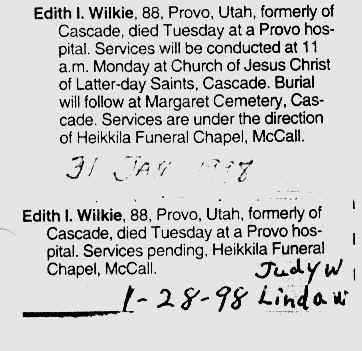 Edith I. Wilkie, 88, Provo, Utah, formerly of
Cascade, died Tuesday at a Provo hos-
pital. Services will be conducted at 11
a.m. Monday at Church of Jesus Christ
of Latter-day Saints, Cascade. Burial
will follow at Margaret Cemetery, Cas-
cade. Services are under the direction
of Heikkila Funeral Chapel, McCall.
31 JAN
Edith I. Wilkie, 88, Provo, Utah, formerly of
Cascade, died Tuesday at a Provo hos-
pital. Services pending, Heikkila Funeral
Chapel, McCall.
Judy W
1-28-98 Linda W